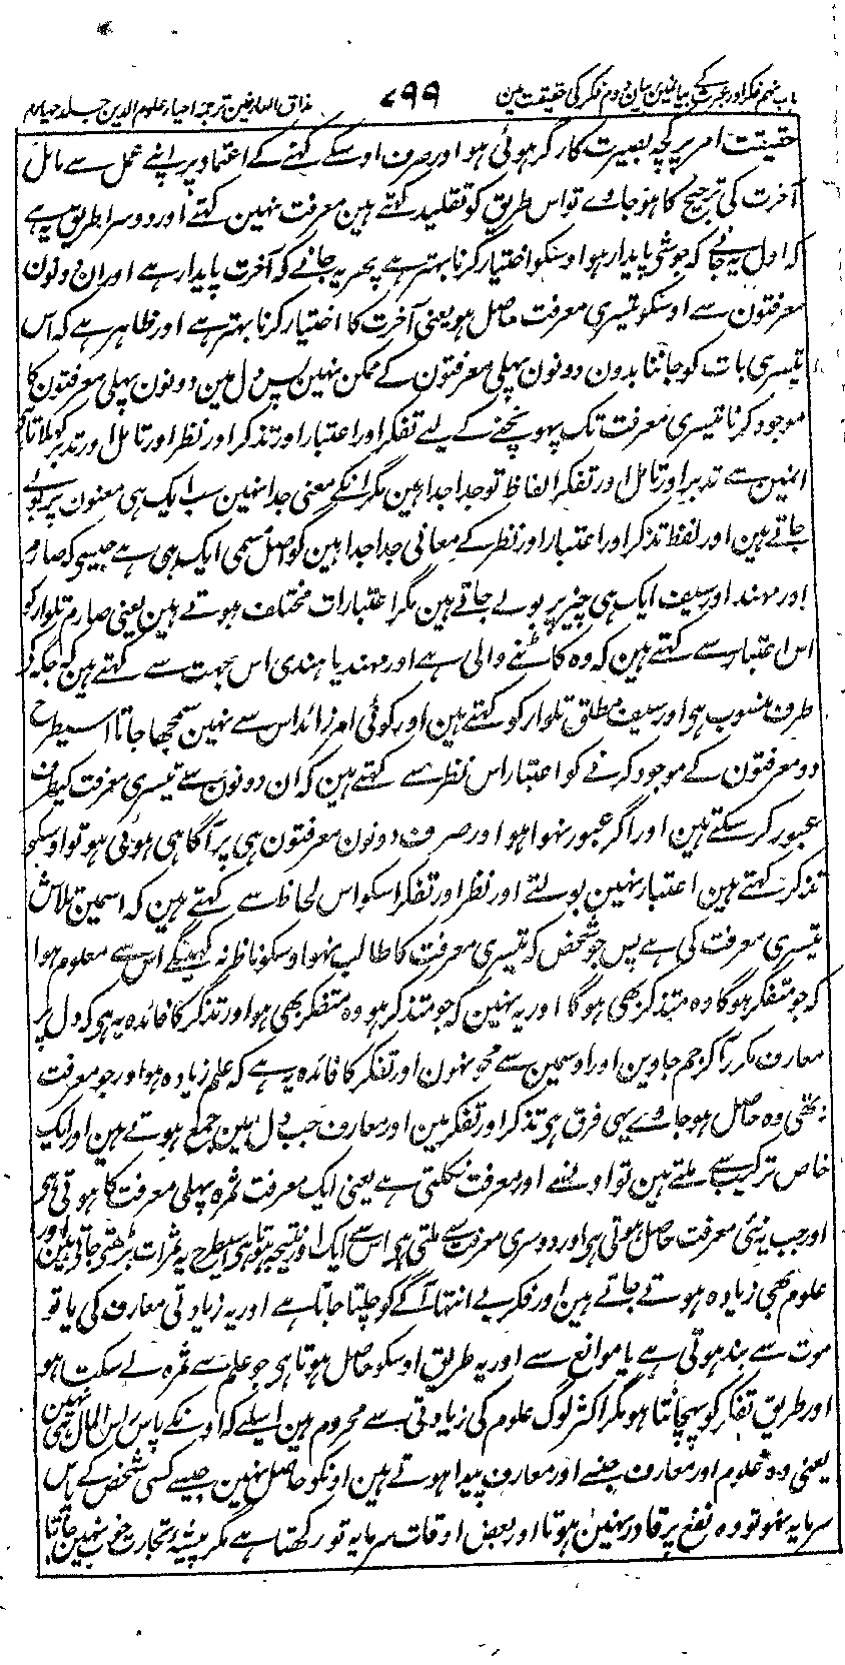 باب نہم فکر اور عبرت کے بیانمین بیان دوم فکر کی حقیقت مین
۷۹۹
مذاق العارفین ترجمہ احیاء علوم الدین جلد چہارم
حقیقت امر پر کچہ بصیرت کارگر ہوئی ہو اور صرف اوسکے کہنے کے اعتماد پر اپنے عمل سے مائل
آخرت کی ترجیح کا ہو جاوے تو اس طریق کو تقلید کہتے ہین معرفت نہین کہتے اور دوسرا طریق یہ ہے
کہ اول یہ جانے کہ جو شی پایدار ہو اوسکو اختیار کرنا بہتر ہے پھر یہ جانے کہ آخرت پایدار ہے اور ان دونون
معرفتون سے اوسکو تیسری معرفت حاصل ہو یعنی آخرت کا اختیار کرنا بہتر ہے اور ظاہر ہے کہ اس
تیسری بات کو جاننا بدون دونون پہلی معرفتون کے ممکن نہین پس دل مین دونون پہلی معرفتون کا
موجود کرنا تیسری معرفت تک پہونچنے کے لیے تفکر اور اعتبار اور تذکر اور نظر اور تامل اور تدبر کہلاتا ہے
انمین سے تدبر اور تامل اور تفکر الفاظ تو جدا جدا ہین مگر انکے معنی جدا نہین سب ایک ہی معنون پر بولے
جاتے ہین اور لفظ تذکر اور اعتبار اور نظر کے معانی جدا جدا ہین گو اصل مسمی ایک ہی ہے جیسے کہ صارم
اور مہند اور سیف ایک ہی چیز پر بولے جاتے ہین مگر اعتبارات مختلف ہوتے ہین یعنی صارم تلوار کو
اس اعتبار سے کہتے ہین کہ وہ کاٹنے والی ہے اور مہند یا ہندی اس جہت سے کہتے ہین کہ جگہ کی
طرف منسوب ہو اور سیف مطلق تلوار کو کہتے ہین اور کوئی امر زائد اس سے نہین سمجھا جاتا اسیطرح
دو معرفتون کے موجود کرنے کو اعتبار اس نظر سے کہتے ہین کہ ان دونون سے تیسری معرفت کیطرف
عبور کر سکتے ہین اور اگر عبور نہوا ہو اور صرف دونون معرفتون ہی پر آگاہی ہوئی ہو تو اوسکو
تذکر کہتے ہین اعتبار نہین بولتے اور نظر اور تفکر اسکو اس لحاظ سے کہتے ہین کہ اسمین تلاش
تیسری معرفت کی ہے پس جو شخص کہ تیسری معرفت کا طالب نہو اوسکو ناظر نہ کہینگے اس سے معلوم ہوا
کہ جو متفکر ہوگا وہ متذکر بھی ہوگا اور یہ نہین کہ جو متذکر ہو وہ متفکر بھی ہو اور تذکر کا فائدہ یہ ہو کہ دل پر
معارف مکرر آکر جم جاوین اور اوسمین سے محو نہون اور تفکر کا فائدہ یہ ہے کہ علم زیادہ ہو اور جو معرفت
نہ تھی وہ حاصل ہو جاوے یہی فرق ہو تذکر اور تفکر مین اور معارف جب دل مین جمع ہوتے ہین اور ایک
خاص ترکیب سے ملتے ہین تو اونسے اور معرفت نکلتی ہے یعنی ایک معرفت ثمرہ پہلی معرفت کا ہوتی ہے
اور جب یہ نئی معرفت حاصل ہوتی ہی اور دوسری معرفت سے ملتی ہی اس سے ایک اور نتیجہ ہوتا ہی اسیطرح یہ ثمرات بڑھتی جاتی ہین اور
علوم بھی زیادہ ہوتے جاتے ہین اور فکر بے انتہا آگے کو چلتا جاتا ہے اور یہ زیادتی معارف کی یا تو
موت سے بند ہوتی ہے یا موانع سے اور یہ طریق اوسکو حاصل ہوتا ہی جو علم سے ثمرہ لے سکتا ہو
اور طریق تفکر کو پہچانتا ہو مگر اکثر لوگ علوم کی زیادتی سے محروم ہین اسلے کہ اونکے پاس راس المال ہی نہین
یعنی وہ علوم اور معارف جنسے اور معارف پیدا ہوتے ہین اونکو حاصل نہین جیسے کسی شخص کے پاس
سرمایہ نہو تو وہ نفع پر قادر نہین ہوتا اور بعض اوقات سرمایہ تو رکھتا ہے مگر پیشہ تجارت خوب نہین جانتا